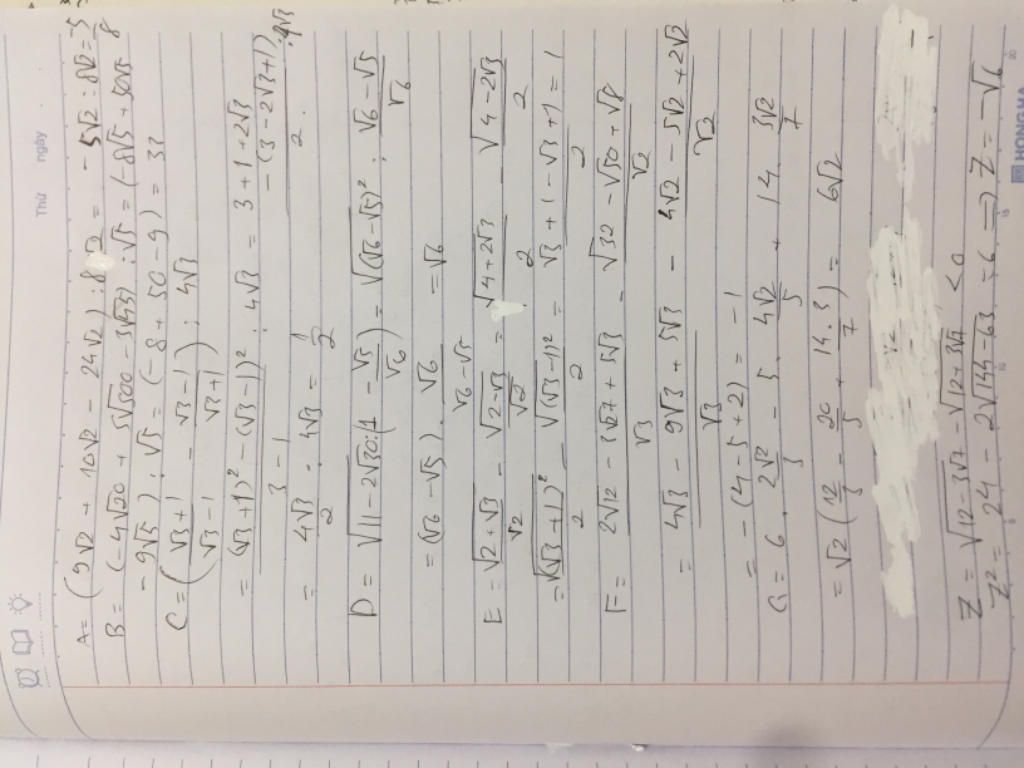 Thứ ngày
A = (9√2 + 10√2 - 24√2) : 8√2 = -5√2 : 8√2 = -5/8
B = (-4√20 + 5√500 - 3√45) : √5 = (-8√5 + 50√5
- 9√5) : √5 = (-8 + 50 - 9) = 33
C = ((√3+1)/(√3-1) - (√3-1)/(√3+1)) : 4√3
= ((√3+1)² - (√3-1)²)/(3-1) : 4√3 = (3+1+2√3 - (3-2√3+1))/2 : 4√3
= 4√3/2 : 4√3 = 1/2
D = √(11-2√30) : (1 - √5/√6) = √((√6-√5)²) : (√6-√5)/√6
= (√6-√5) . √6/(√6-√5) = √6
E = √(2+√3)/√2 - √(2-√3)/√2 = √(4+2√3)/2 - √(4-2√3)/2
= √((√3+1)²)/2 - √((√3-1)²)/2 = (√3+1-√3+1)/2 = 1
F = (2√12 - 3√27 + 5√3)/√3 - (√32 - √50 + √8)/√2
= (4√3 - 9√3 + 5√3)/√3 - (4√2 - 5√2 + 2√2)/√2
= -(4-5+2) = -1
G = 6 . 2√2/3 - 5 . 4√2/5 + 14 . 3√2/7
= √2 (12/3 - 20/5 + 14.3/7) = 6√2
Z = √(12-3√7) - √(12+3√7) < 0
Z² = 24 - 2√(144-63) = 6 => Z = -√6
HONG HA